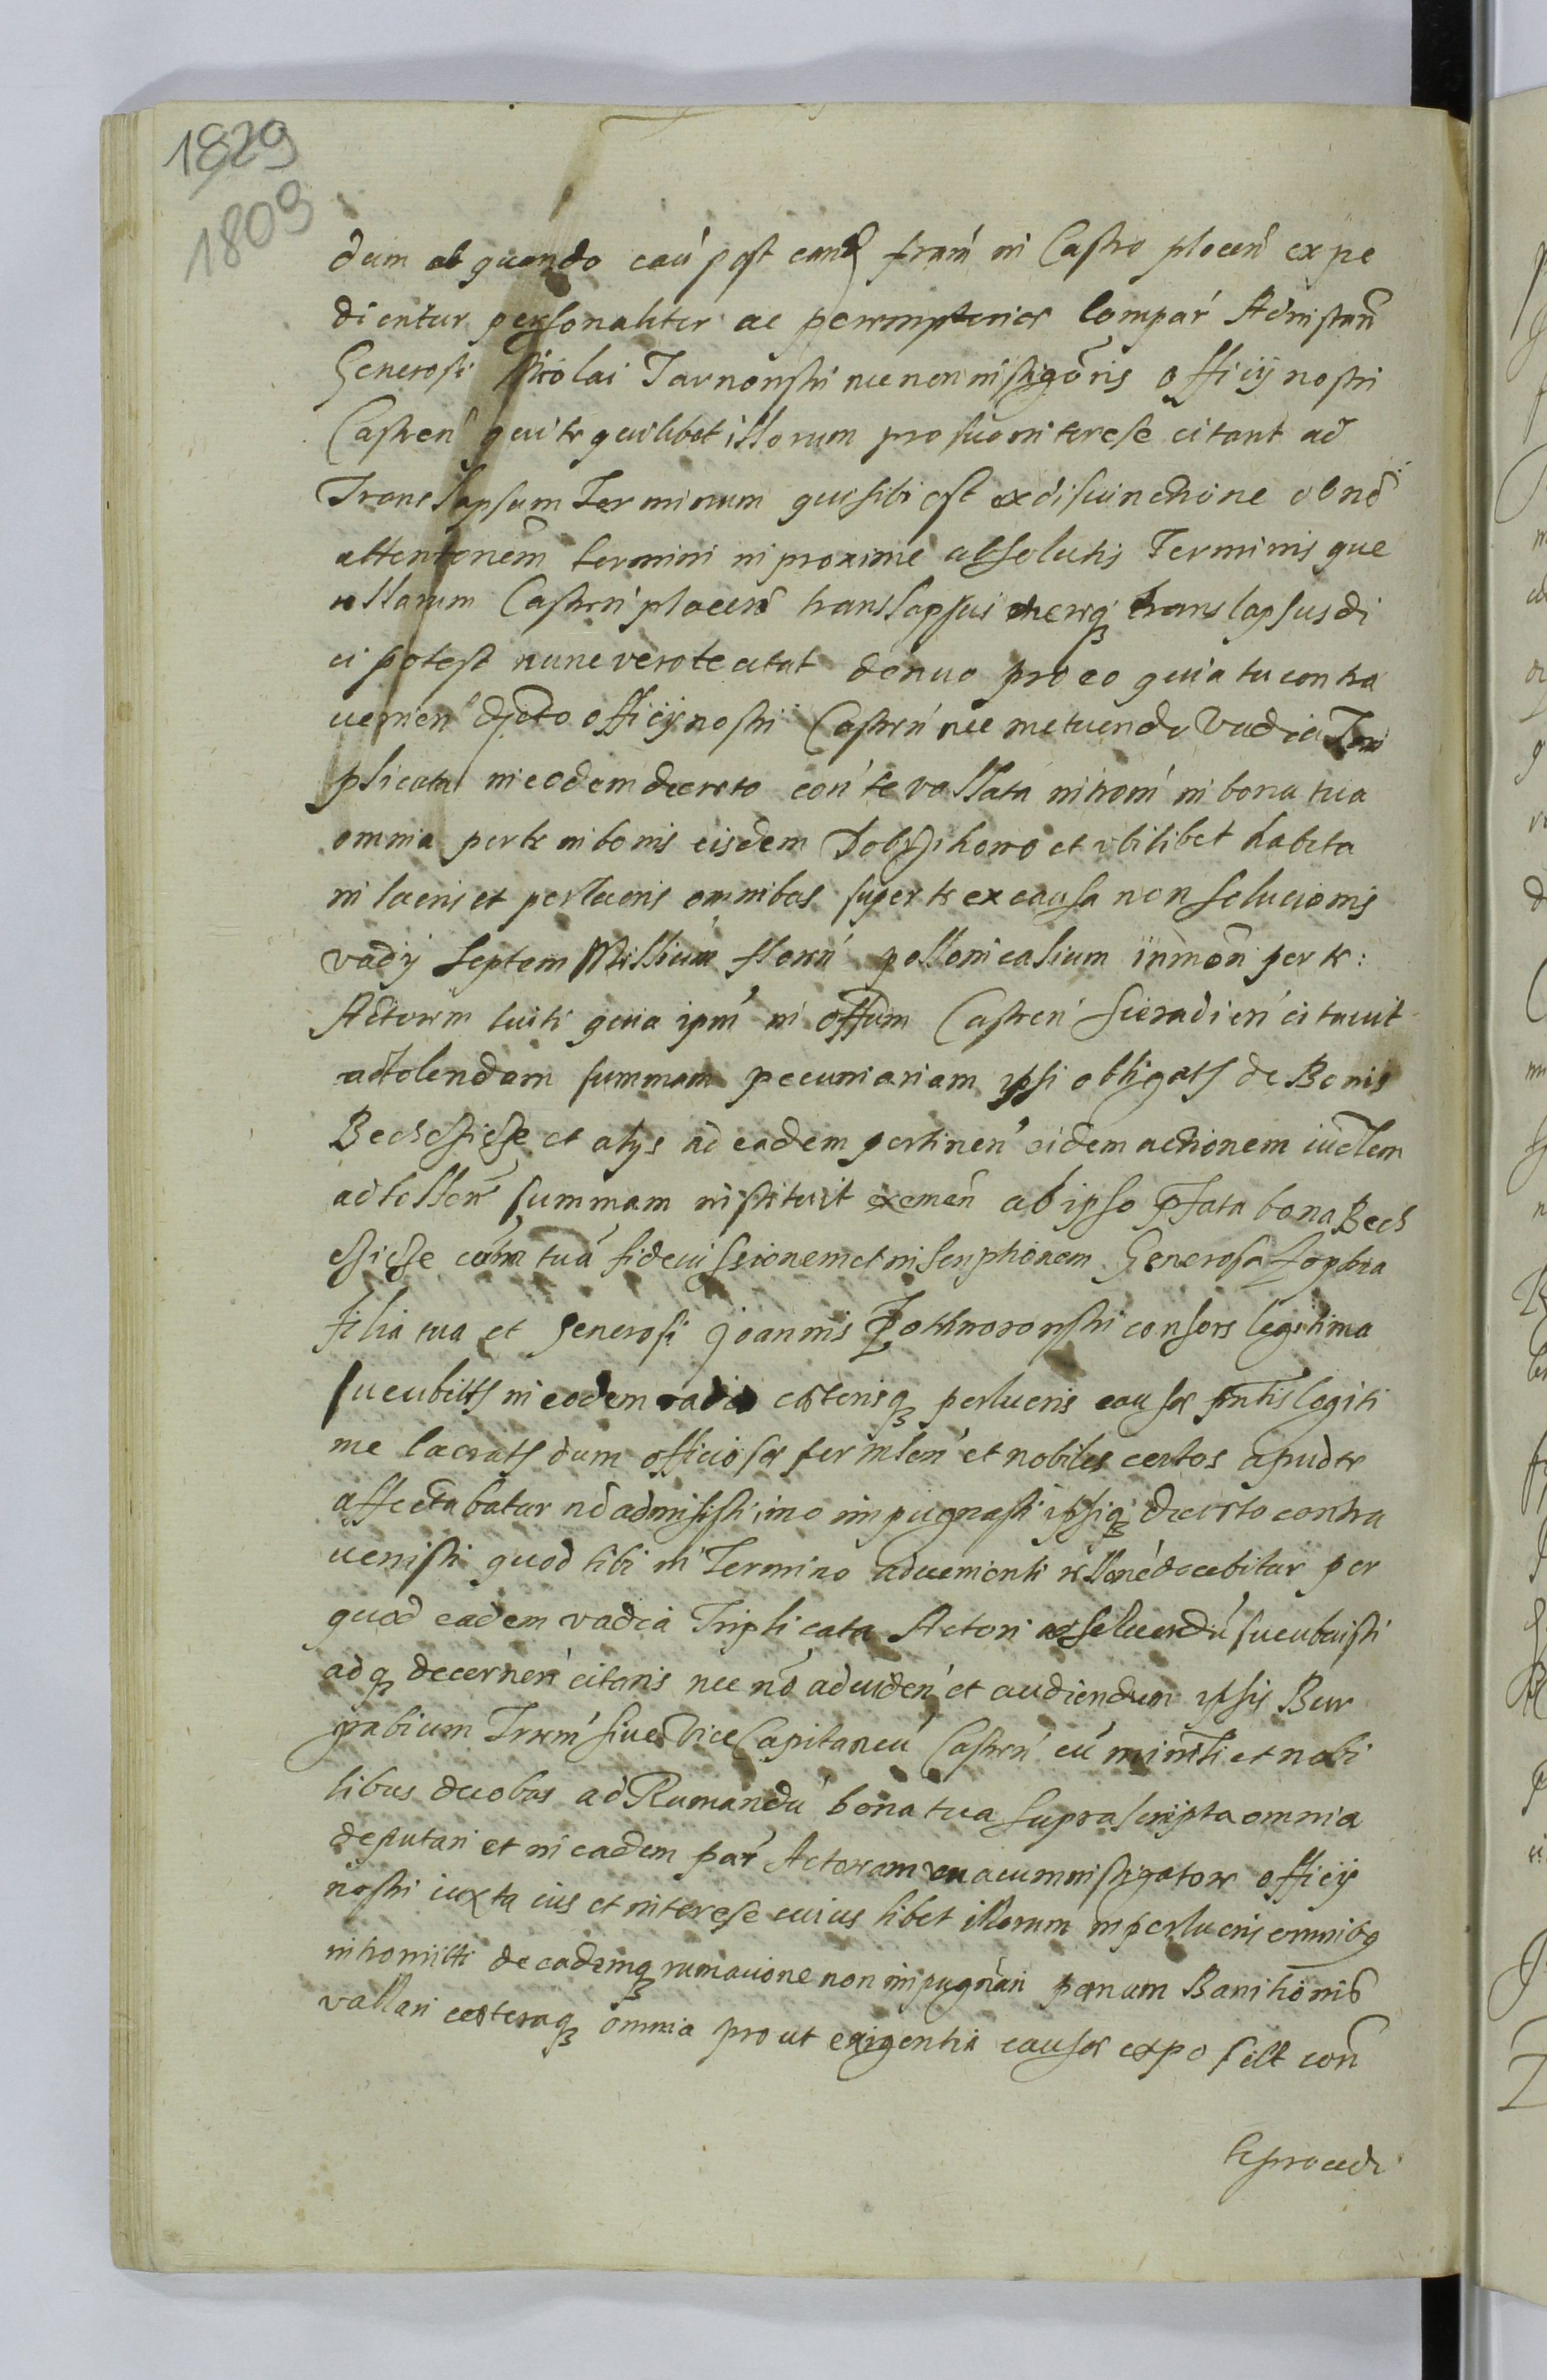 1829
1809
dum et quando cau post eand fram in Castro plocen expe
dientur personaliter ac peremptoriae Compar Ad instan
Generosi Nicolai Tarnonski necnon instigoris officij nostri
Castren qui te quilibet illorum pro suo interesse citant ad
Translapsum Terminum qui sibi est ex disiunctione ob nō
attentionem termini in proxime absolutis Terminis que
rellarum Castren plocen translapsus translapsus di
ci potest nunc vero te citat denuo pro eo quia tu contra
uenien decto officij nostri Castren nec metuendo Vadia Tri
plicata in eodem decreto con te vallata introm in bona tua
omnia per te in bonis eisdem et vbilibet habita
in lucris et perlucris omnibus super te ex causa non solucionis
vadij septem Millium floren pollonicalium inmon per te:
Actorem luiti quia ipm in offum Castren Sieradien citauit
ad tolendam summam pecuniariam ipsi obligats de Bonis
et alys ad eadem pertinen eidem actionem
ad tollen summam instituit exemen ab ipso pfata bona Bech
tua fideiussionem et inscriptionem Generosa Zophia
filia tua et Generosi Joannis consors legitima
sucubuits in eodem vadio ceterisq perlucris causae pntis legiti
me lucrats dum officiose ser et nobiles certos apud te
affectabatur nō admisisti imo impugnasti ipsiq decreto contra
uenisti quod tibi in Termino aduenienti docebitur per
quod eadem vadia Triplicata Actori sucubuisti
adq decernen citaris nec nō ad viden et audiendum ipsis Bur
grabium siue ViceCapitaneu Castren cu ministi et nobi
libus duobus ad Rumandu bona tua suprascripta omnia
deputari et in eadem par Actoream vna cum instigatore officij
nostri iuxta ius et interesse cuius libet illorum in perlucris omnibq
intromitti de eademq rumacione non impugnari paenam Banitionis
vallari ceteraq omnia prout exigentia causae exposcilt con
te procedi